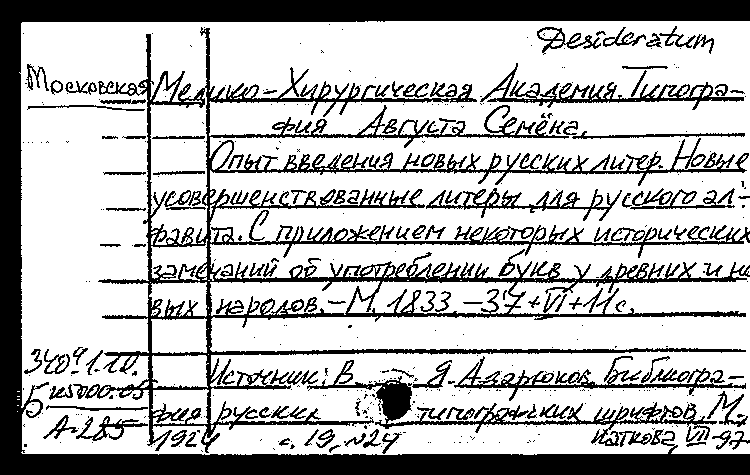 Desideratum
Московская Медико-Хирургическая Академия. Типогра-
фия Августа Семёна.
Опыт введения новых русских литер. Новые
усовершенствованные литеры для русского ал-
фавита. С приложением некоторых исторических
замечаний об употреблении букв у древних и но
вых народов. - М., 1833. - 37+VI+11 с.
Источник: В. Я. Адарюков. Библиогра-
фия русских типографских шрифтов, М.,
1924 с. 19, №24
А-285
VII-97